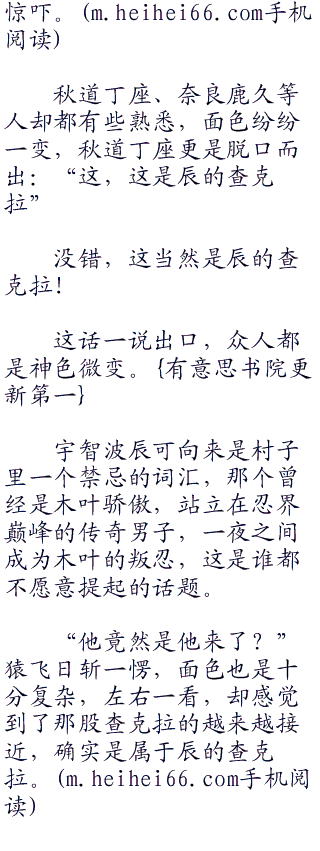 惊吓。(m.heihei66.com手机
阅读)
秋道丁座、奈良鹿久等
人却都有些熟悉，面色纷纷
一变，秋道丁座更是脱口而
出：“这，这是辰的查克
拉”
没错，这当然是辰的查
克拉！
这话一说出口，众人都
是神色微变。{有意思书院更
新第一}
宇智波辰可向来是村子
里一个禁忌的词汇，那个曾
经是木叶骄傲，站立在忍界
巅峰的传奇男子，一夜之间
成为木叶的叛忍，这是谁都
不愿意提起的话题。
“他竟然是他来了？”
猿飞日斩一愣，面色也是十
分复杂，左右一看，却感觉
到了那股查克拉的越来越接
近，确实是属于辰的查克
拉。(m.heihei66.com手机阅
读)